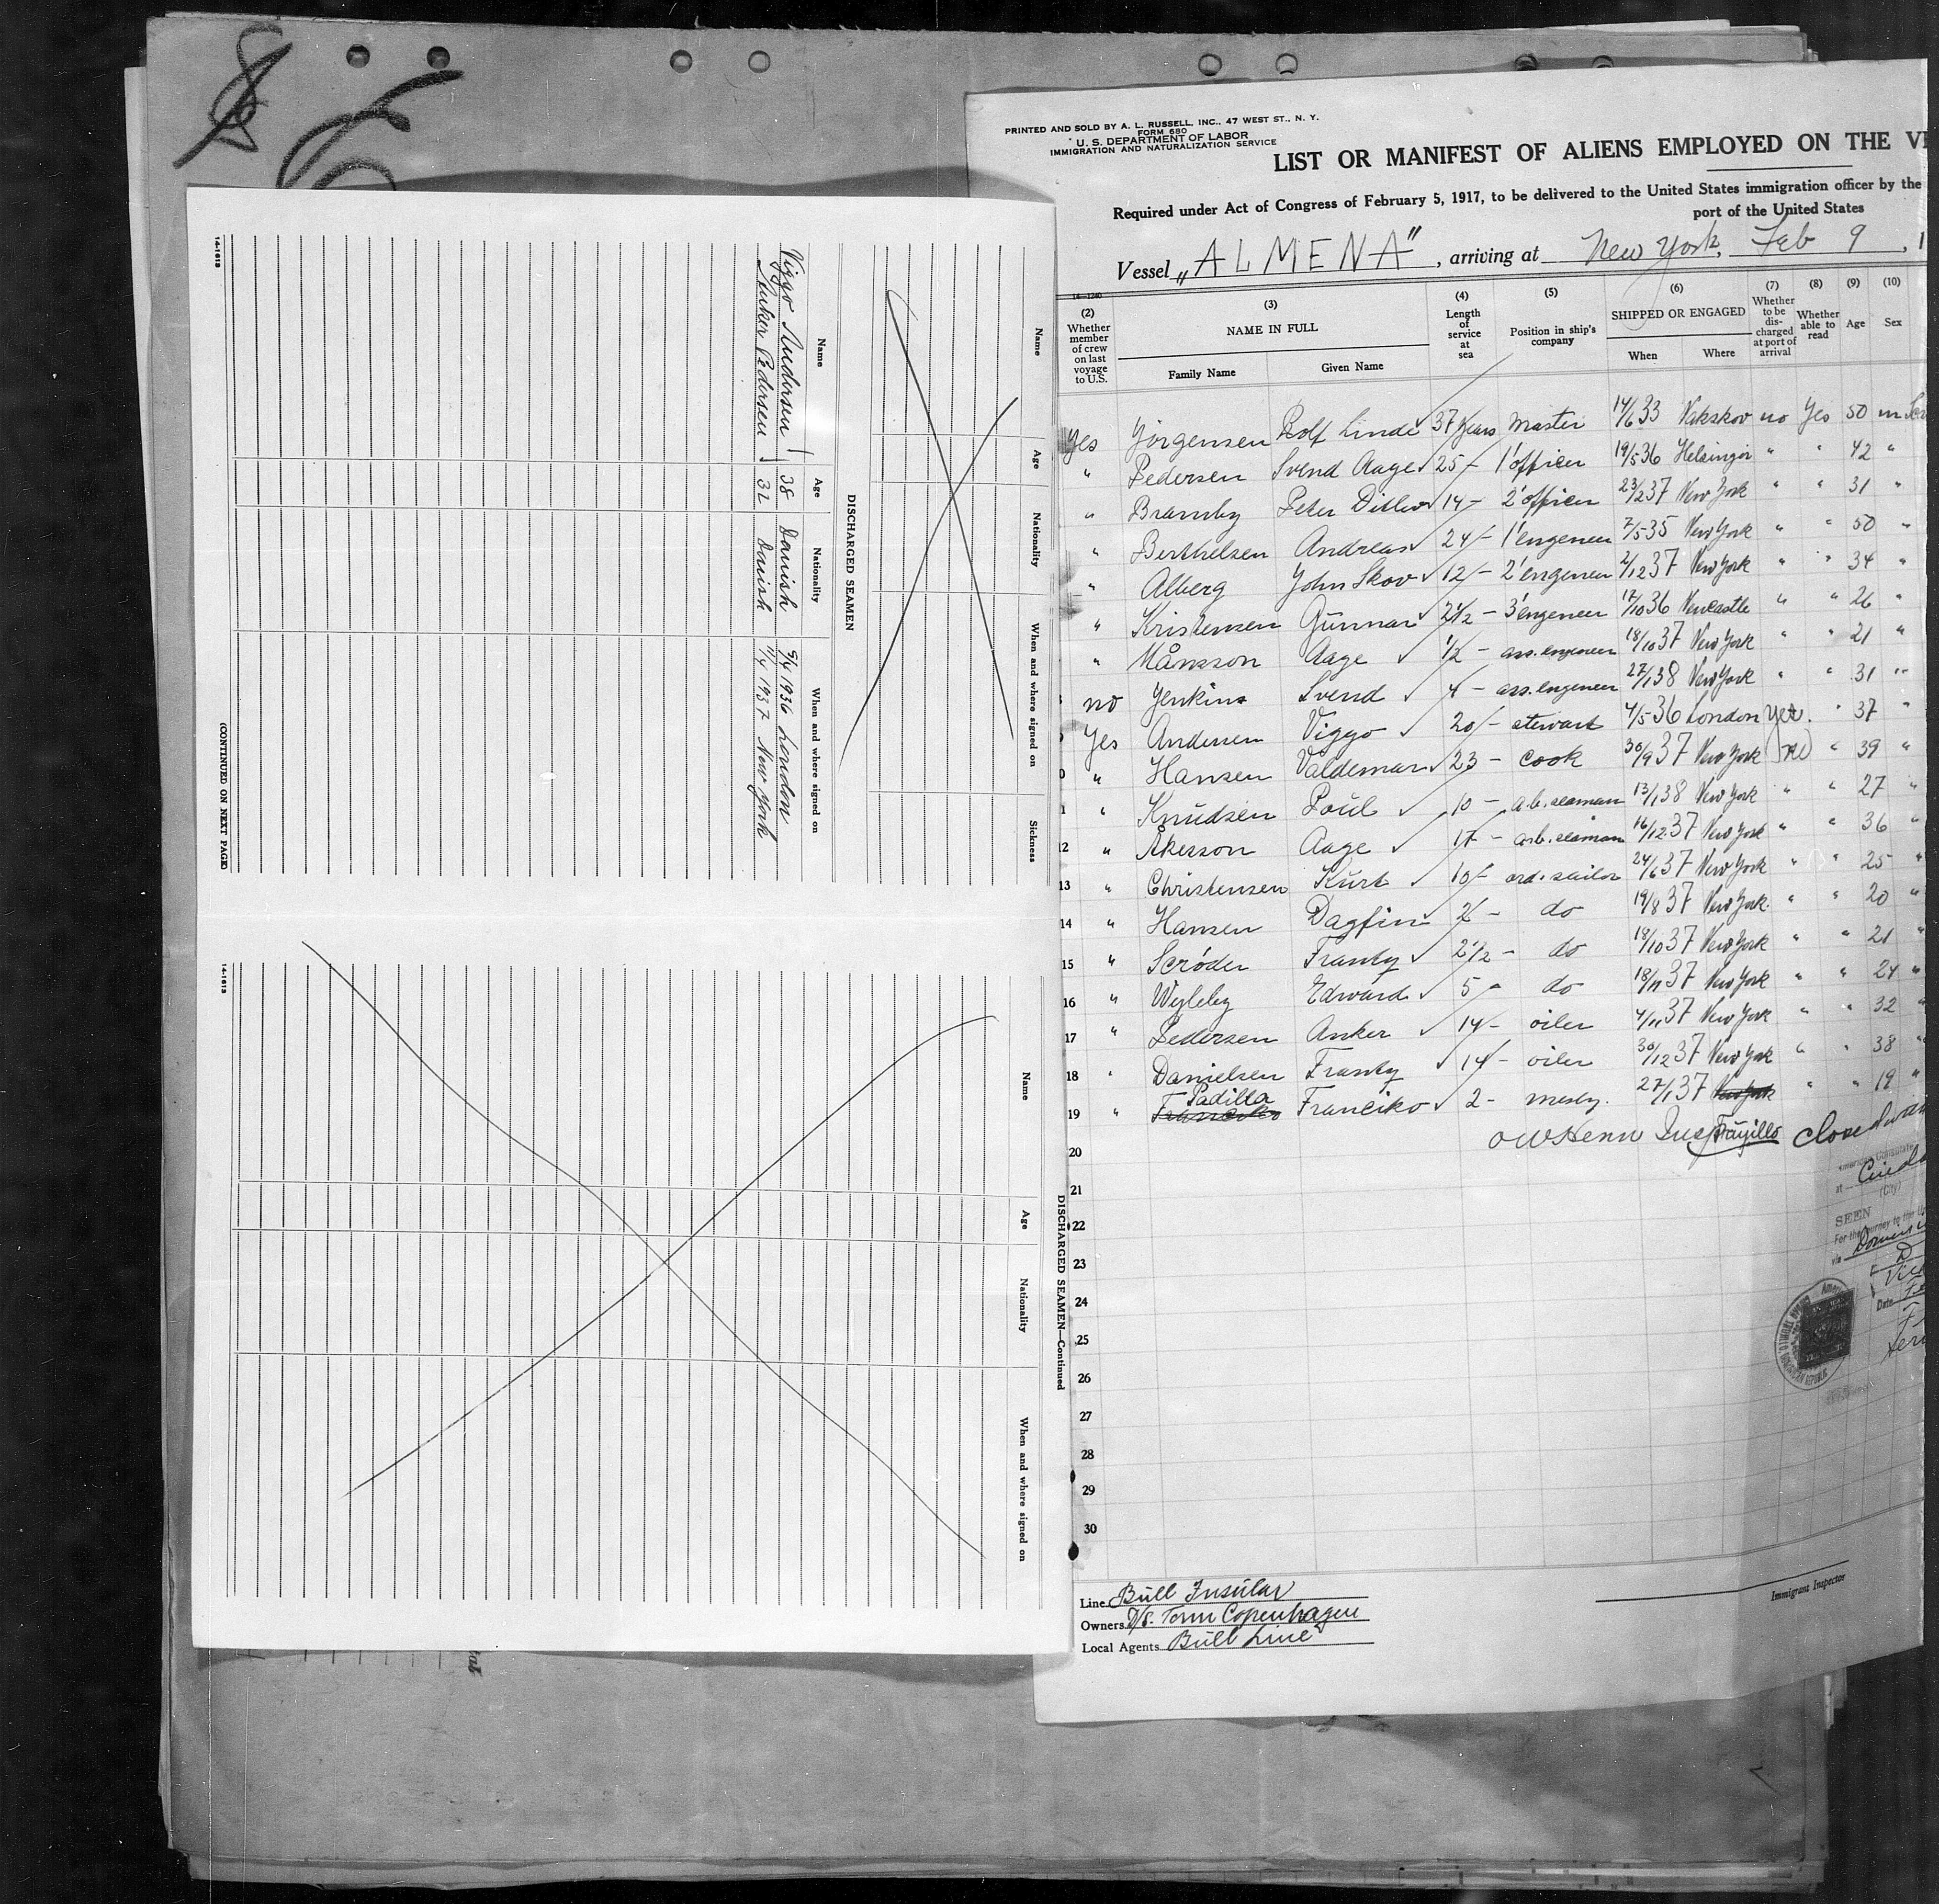 PRINTED AND SOLD BY A. L. RUSSELL, INC., 47 WEST ST., N. Y.
FORM 680
U. S. DEPARTMENT OF LABOR
IMMIGRATION AND NATURALIZATION SERVICE
LIST OR MANIFEST OF ALIENS EMPLOYED ON THE
Required under Act of Congress of February 5, 1917, to be delivered to the United States immigration officer by the
port of the United States
Vessel "ALMENA", arriving at New York, Feb 9, 1
(2) (3) (4) (5) (6) (7) (8) (9) (10)
Whether member of crew on last voyage to U.S. NAME IN FULL Length of service at sea Position in ship's company SHIPPED OR ENGAGED Whether to be discharged at port of arrival Whether able to read Age Sex
Family Name Given Name When Where
Yes Jörgensen Rolf Linde 37 years Master 14/6 33 Nakskov no Yes 50 m
" Pedersen Svend Aage 25 - 1' officer 19/5 36 Helsingör " " 42 "
" Bramby Peter Ditlev 14 - 2' officer 23/2 37 New York " " 31 "
" Berthelsen Andreas 24 - 1' engeneer 7/5 35 New York " " 50 "
" Alberg John Skov 12 - 2' engeneer 2/12 37 New York " " 34 "
" Kristensen Gunnar 2 1/2 - 3' engeneer 17/10 36 Newcastle " " 26 "
" Månsson Aage 1/2 - ass. engeneer 18/10 37 New York " " 21 "
no Jenkins Svend 4 - ass. engeneer 27/1 38 New York " " 31 "
Yes Andersen Viggo 20 - stewart 4/5 36 London Yes " 37 "
" Hansen Valdemar 23 - cook 30/9 37 New York no " 39 "
" Knudsen Poul 10 - a.b. seaman 13/1 38 New York " " 27 "
12 " Åkesson Aage 17 - a.b. seaman 16/12 37 New York " " 36 "
13 " Christensen Kurt 10 - ord. sailor 24/6 37 New York " " 25 "
14 " Hansen Dagfin 2 - do 19/8 37 New York " " 20 "
15 " Scröder Franky 2 1/2 - do 18/10 37 New York " " 21 "
16 " Wyleby Edward 5 - do 18/11 37 New York " " 24 "
17 " Pedersen Anker 14 - oiler 4/11 37 New York " " 32 "
18 " Danielsen Franky 14 - oiler 30/12 37 New York " " 38 "
19 " Padilla Franciko 2 - mesby. 27/1 37 New York " " 19 "
Trujillo closed
20
21
22
23
24
25
26
27
28
29
30
American Consulate
at
(City)
SEEN
For the journey to the
via
Date
Line Bull Insular
Owners D/S. Torm Copenhagen
Local Agents Bull Line
Immigrant Inspector
Name Age Nationality When and where signed on Sickness
DISCHARGED SEAMEN
Name Age Nationality When and where signed on
Viggo Andersen 38 Danish 5/4 1936 London
Anker Pedersen 32 Danish 11/4 1937 New York
(CONTINUED ON NEXT PAGE)
14-1613
DISCHARGED SEAMEN—Continued
Name Age Nationality When and where signed on
14-1613